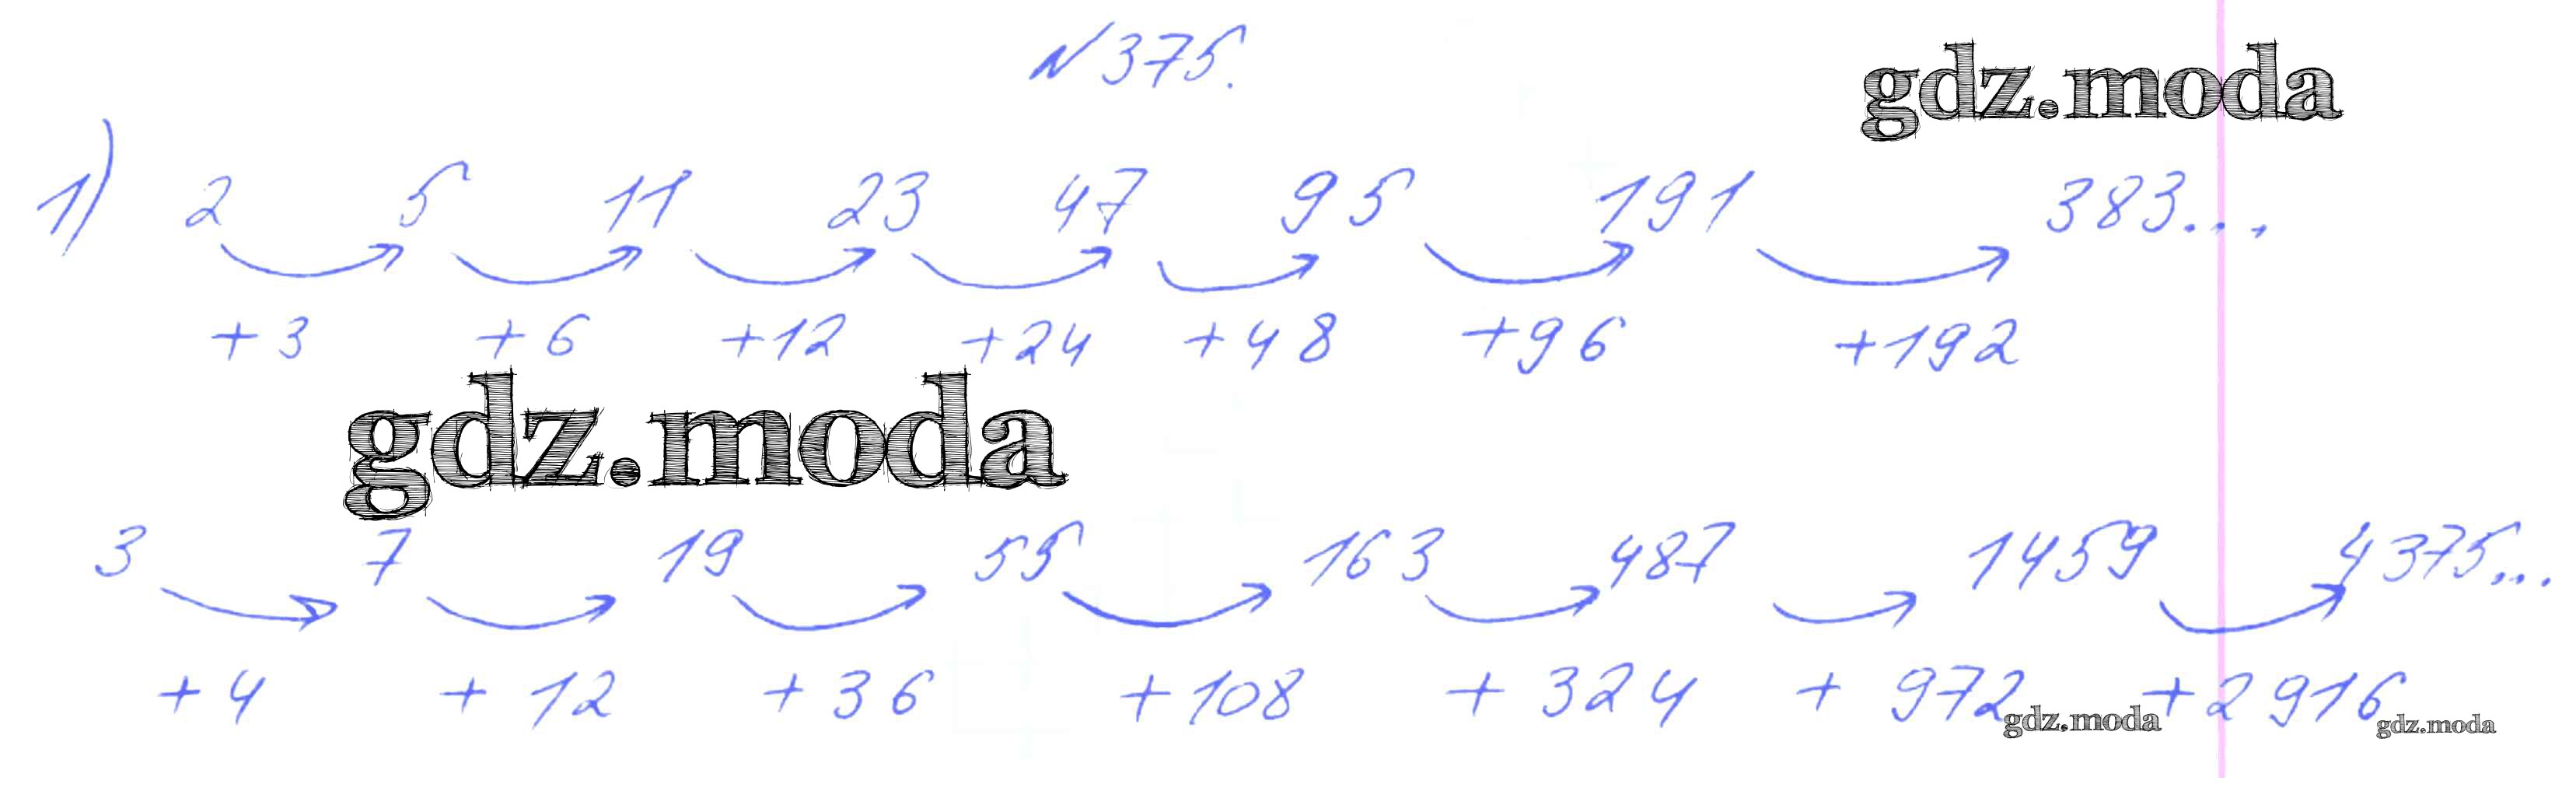 №375.
gdz.moda
1) 2 5 11 23 47 95 191 383...
+3 +6 +12 +24 +48 +96 +192
gdz.moda
3 7 19 55 163 487 1459 4375...
+4 +12 +36 +108 +324 +972 +2916
gdz.moda gdz.moda